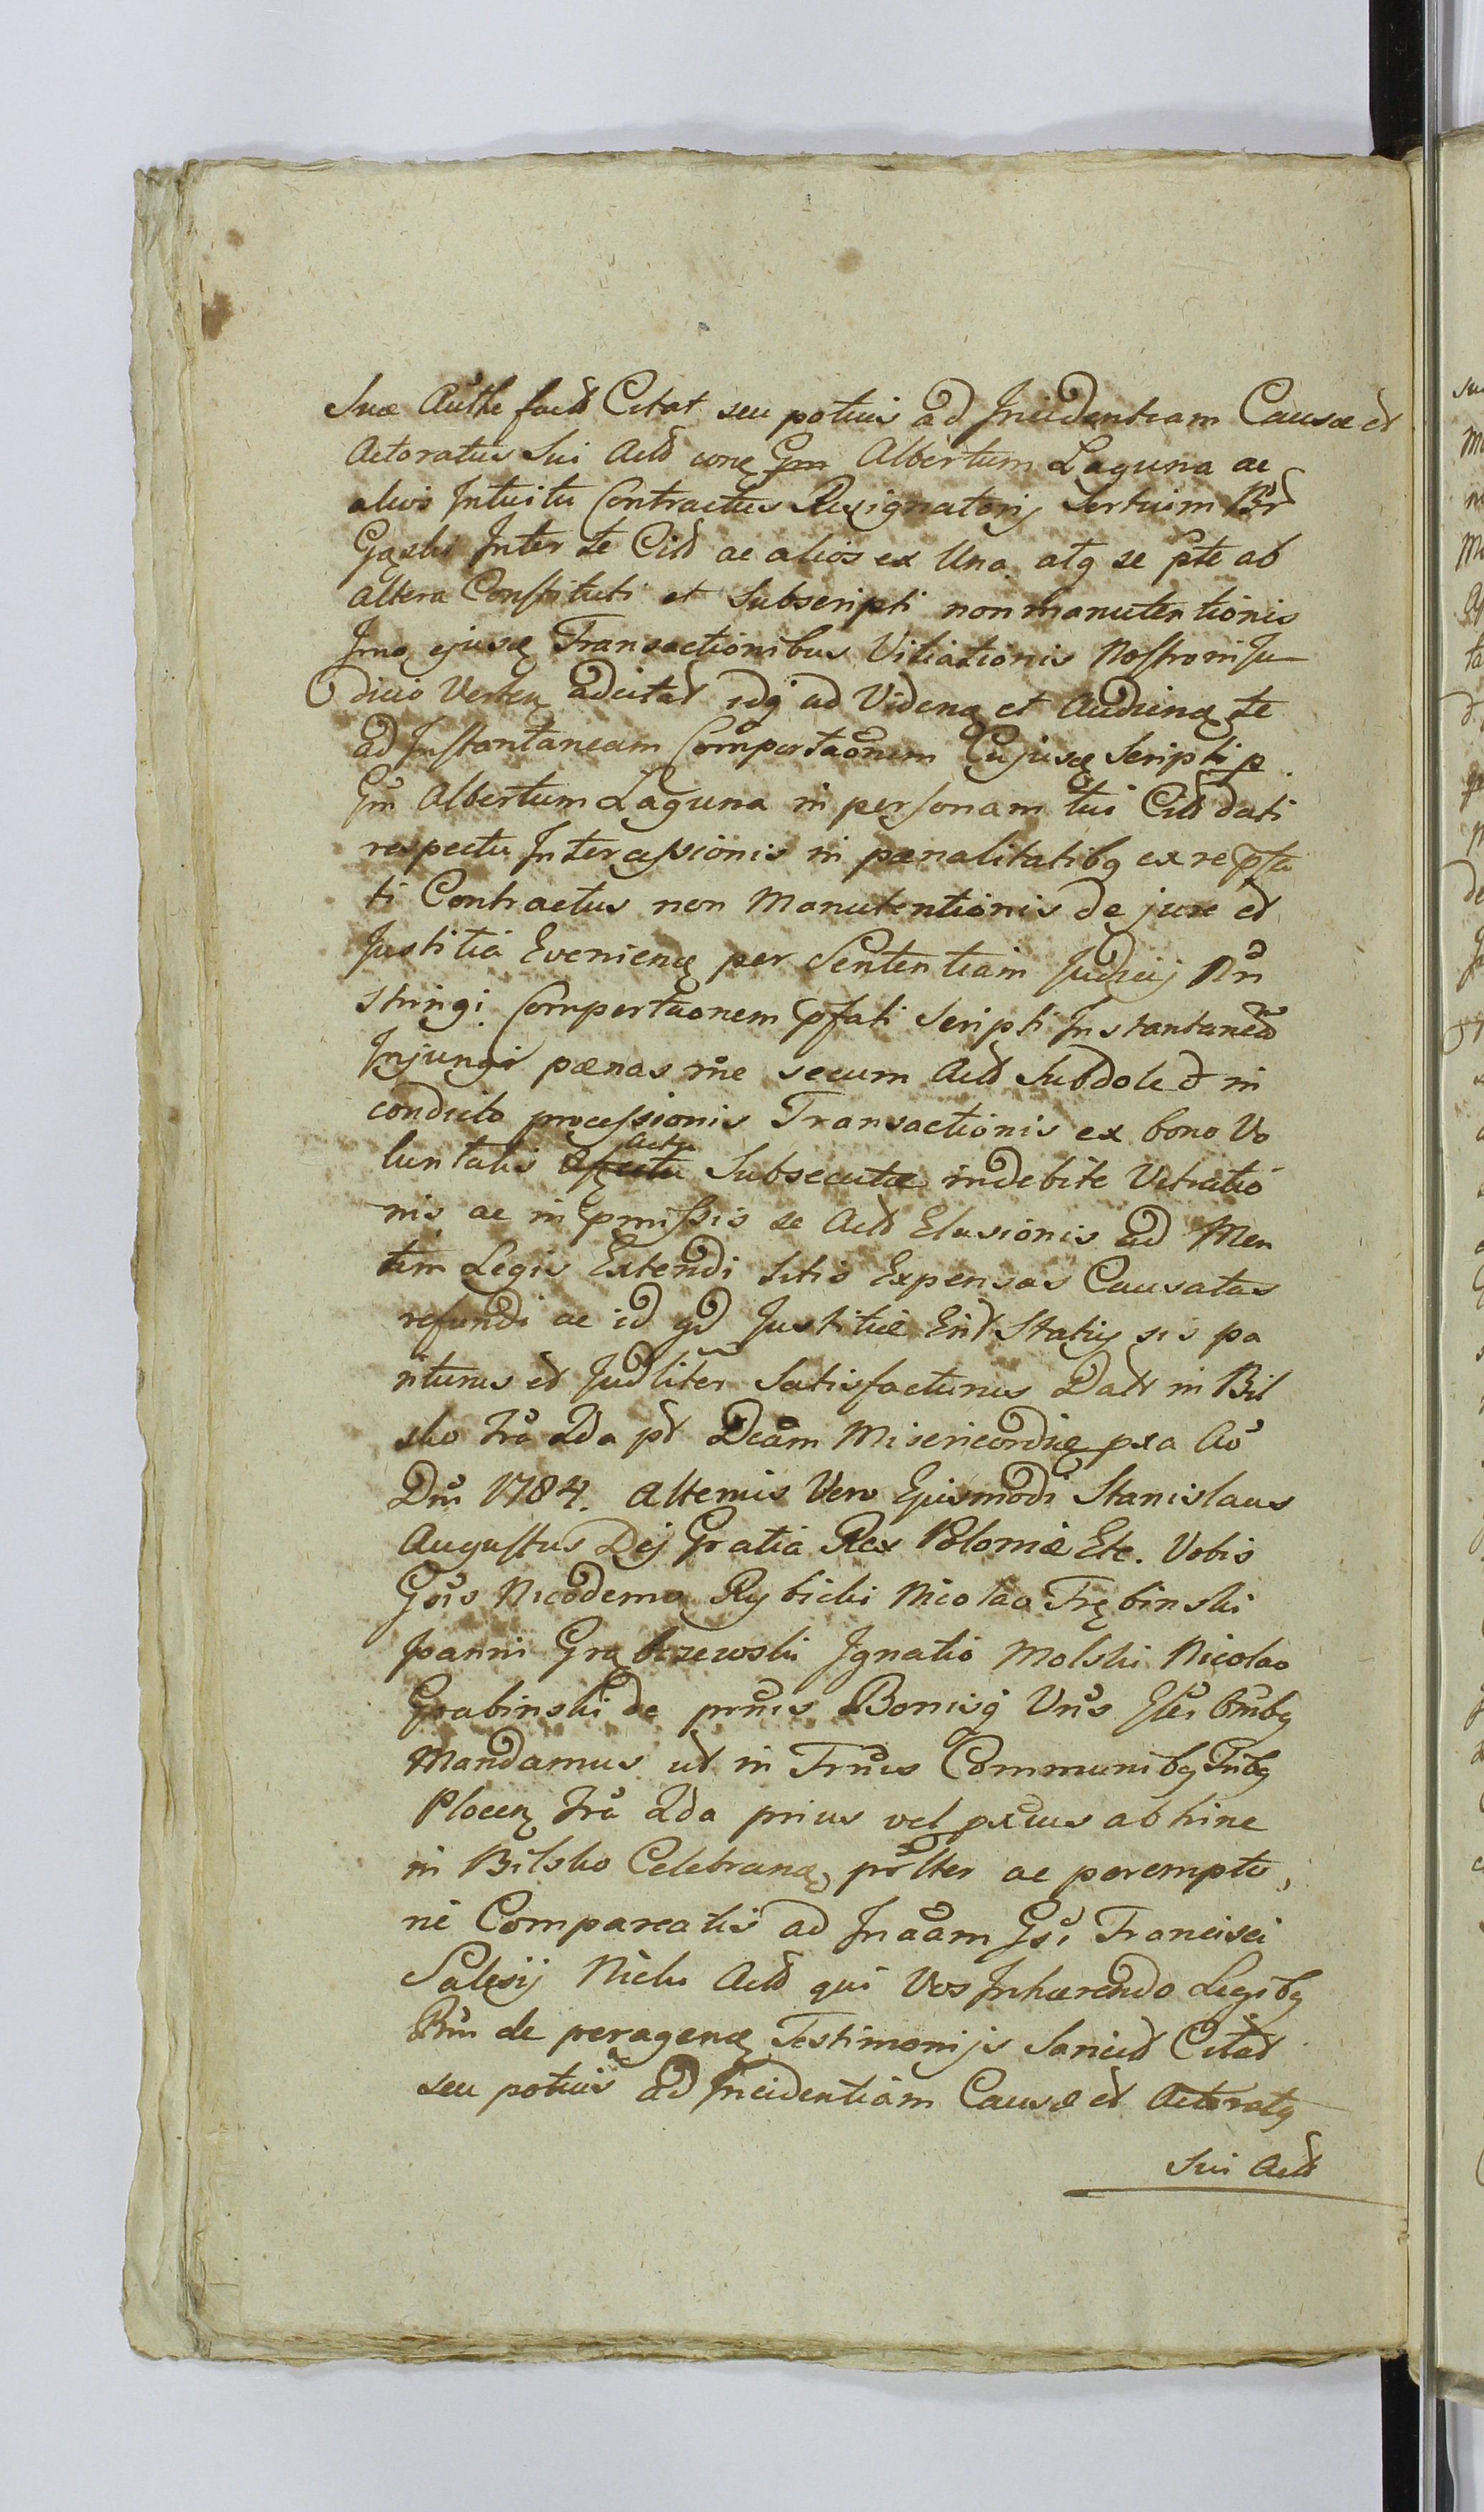 Suæ Authe facit Citat seu potius ad Incidentiam Causæ et
Actoratus Sui Act conę Gm Albertum Laguna ac
alios Intuitu Contractus Resignatorij Sortium Br
Gąski Inter te Cit ac alios ex Una atq se pte ab
altera Constituti et Subscripti non Manutentionis
Imo ejusę Transactionibus Vitiationis Nostro in Ju
dicio Verten adcitat idq ad Videnę et Audienę te
ad Instantaneam Comportaõnem Cujusę Scripti p
Gm Albertum Laguna in personam tui Cit dati
respectu Intercessionis in pænalitatibq ex re pta
ti Contractus non Manutentionis de jure et
Justitia Evenienę per Sententiam Judicij Nri
stringi Comportaonem pfati Scripti Instantaned
Injungi pænas rñe secum Act Subdole d in
condicto processionis Transactionis ex bono Vo
luntatis Actu Subsecutæ indebite Vetratio
nis ac in pmissis se Act Elusionis ad Men
tem Legis Extendi Litis Expensas Causatas
refundi ac id qd Justitiæ Erit Statuj sis pa
riturus et Judliter Satisfacturus Datt in Bil
sko Fra 2da pt Dcam Misericordiæ pxa Ao
Dni 1784. Alternis Vero Ejusmodi Stanislaus
Augustus Dej Gratia Rex Poloniæ Etc. Vobis
Gsis Nicodemo Rybicki Nicolao Trębinski
Joanni Grąbczewski Ignatio Molski Nicolao
Grabinski de prnis Bonisq Vris Gli Omnbq
Mandamus ut in Trnis Communibq Tribq
Plocenę Fra 2da prius vel pxius ab hinc
in Bilsko Celebranę, prslter ac perempto,
rie Compareatis ad Inãam Gsi Francisci
Salesij Nicki Act qui Vos Inhærendo Legibq
Rni de peragenę Testimonijs Sancit Citat
seu potius ad Incidentiam Causæ et Actoratq
Sui Act